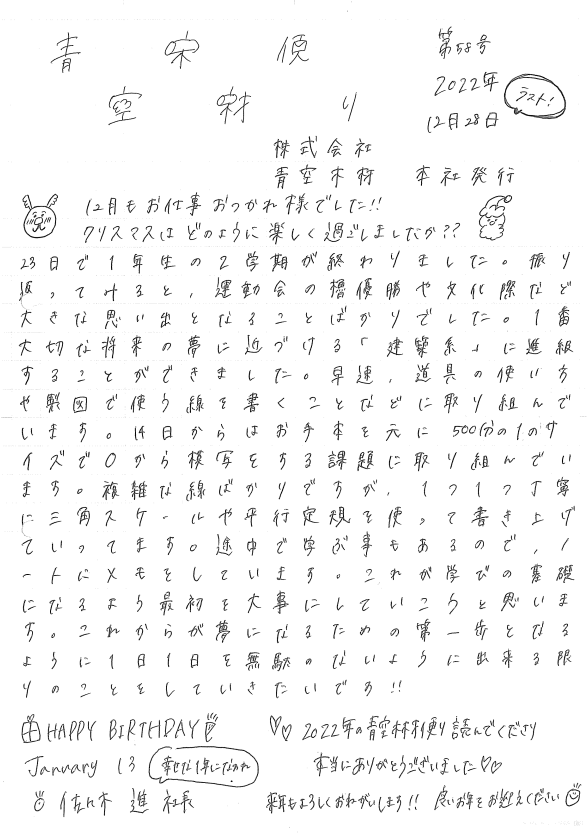 青空便り
第58号
2022年
12月28日
ラスト!
株式会社
青空木材 本社発行
12月もお仕事おつかれ様でした!!
クリスマスはどのように楽しく過ごしましたか??
23日で1年生の2学期が終わりました。振り
返ってみると、運動会の櫓優勝や文化際など
大きな思い出となることばかりでした。1番
大切な将来の夢に近づける「建築系」に進組
することができました。早速、道具の使い方
や製図で使う線を書くことなどに取り組んで
います。14日からはお手本を元に500分の1のサ
イズで0から模写をする課題に取り組んでい
ます。複雑な線ばかりですが、1つ1つ丁寧
に三角スケールや平行定規を使って書き上げ
ていってます。途中で学ぶ事もあるので、ノ
ートにメモをしています。これが学びの基礎
になるよう最初を大事にしていこうと思いま
す。これからが夢になるための第一歩となる
ように1日1日を無駄のないように出来る限
りのことをしていきたいです!!
HAPPY BIRTHDAY
January 13
幸せな1年になぁれ
佐々木 進 社長
2022年の青空材木便り読んでくださり
本当にありがとうございました♡♡
来年もよろしくおねがいします!! 良いお年をお迎えください